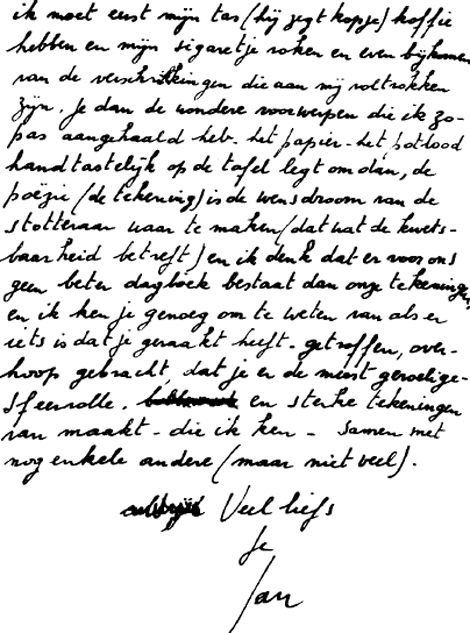 ik moet eerst mijn tas (hij zegt kopje) koffie
hebben en mijn sigaretje roken en even bijkomen
van de verschrikkingen die aan mij voltrokken
zijn. Je dan de wondere voorwerpen die ik zo-
pas aangehaald heb - het papier - het potlood
handtastelijk op de tafel legt om dan, de
poëzie (de tekening) is de wensdroom van de
stotteraar waar te maken (dat wat de kwets-
baarheid betreft) en ik denk dat er voor ons
geen beter dagboek bestaat dan onze tekeningen,
en ik ken je genoeg om te weten van als er
iets is dat je geraakt heeft - getroffen, over-
hoop gebracht dat je er de meest gevoelige -
sfeervolle. en sterke tekeningen
van maakt - die ik ken - samen met
nog enkele andere (maar niet veel).
Veel liefs
Je
Jan